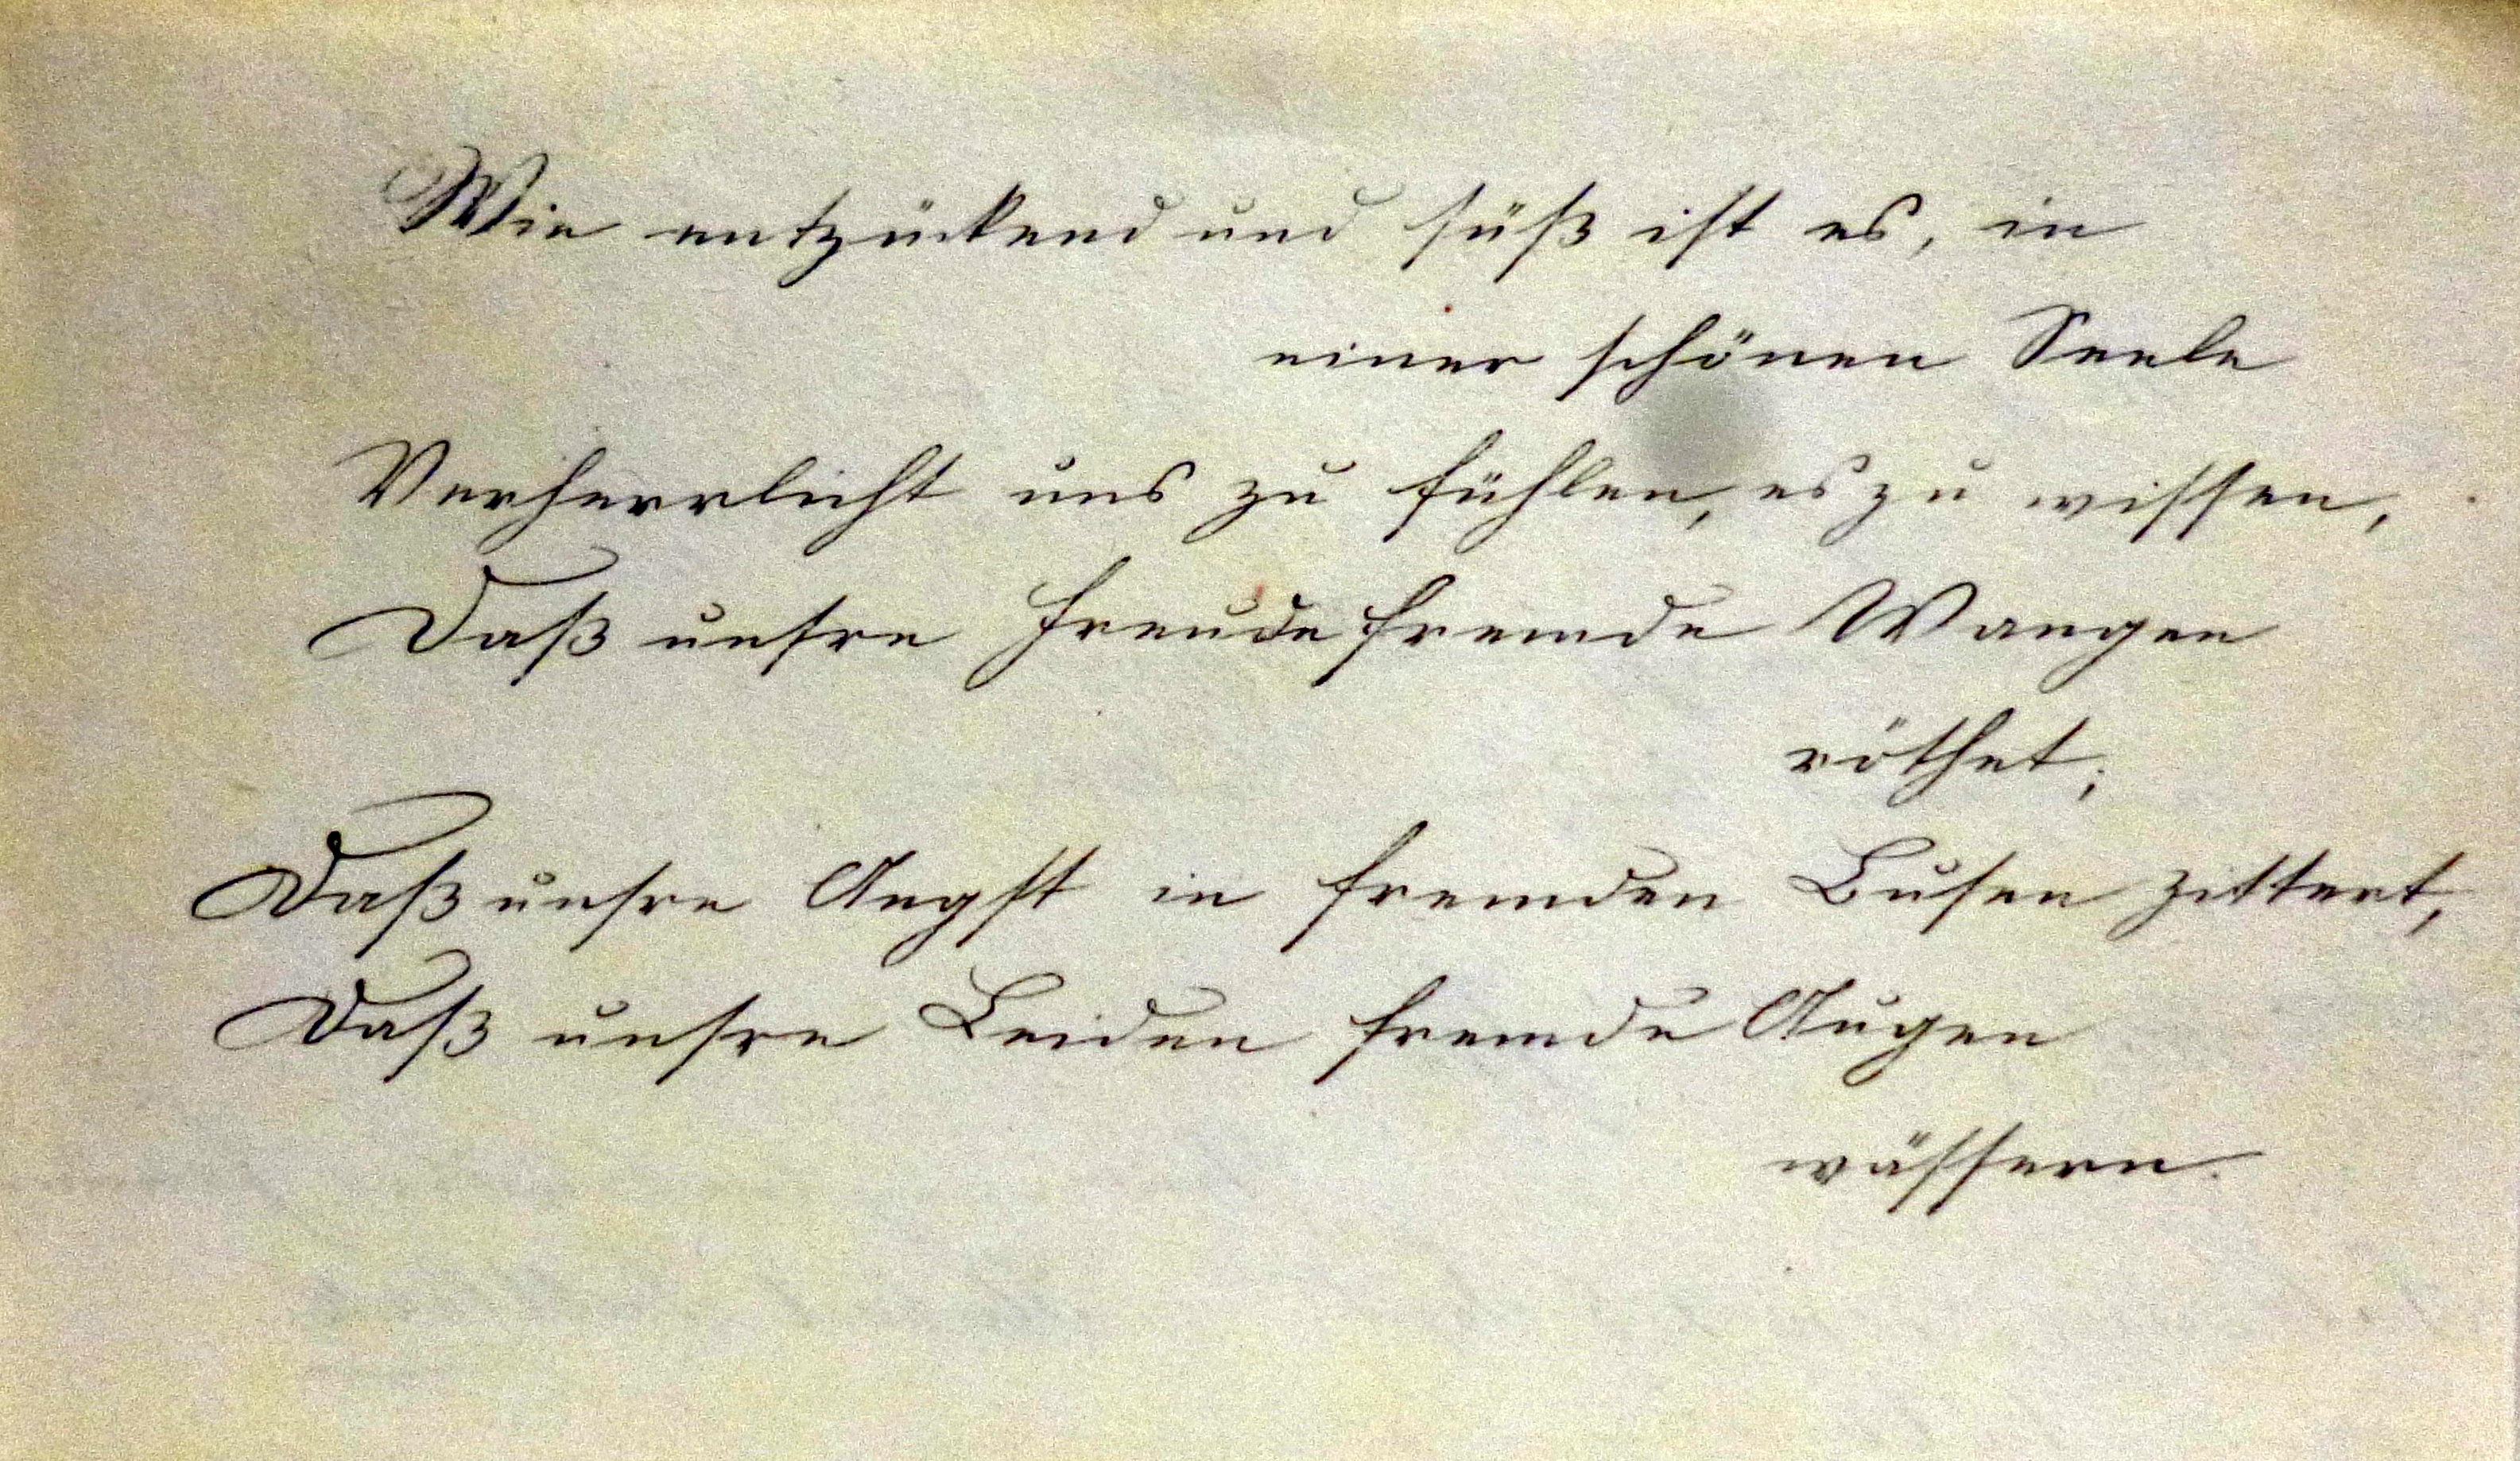 Wie entzückend und süß ist es, in
einer schönen Seele
Verherrlicht uns zu fühlen, es zu wissen,
Daß unsre Freude fremde Wangen
röthet;
Daß unsre Angst in fremden Busen zittert,
Daß unsre Leiden fremde Augen
wässern.